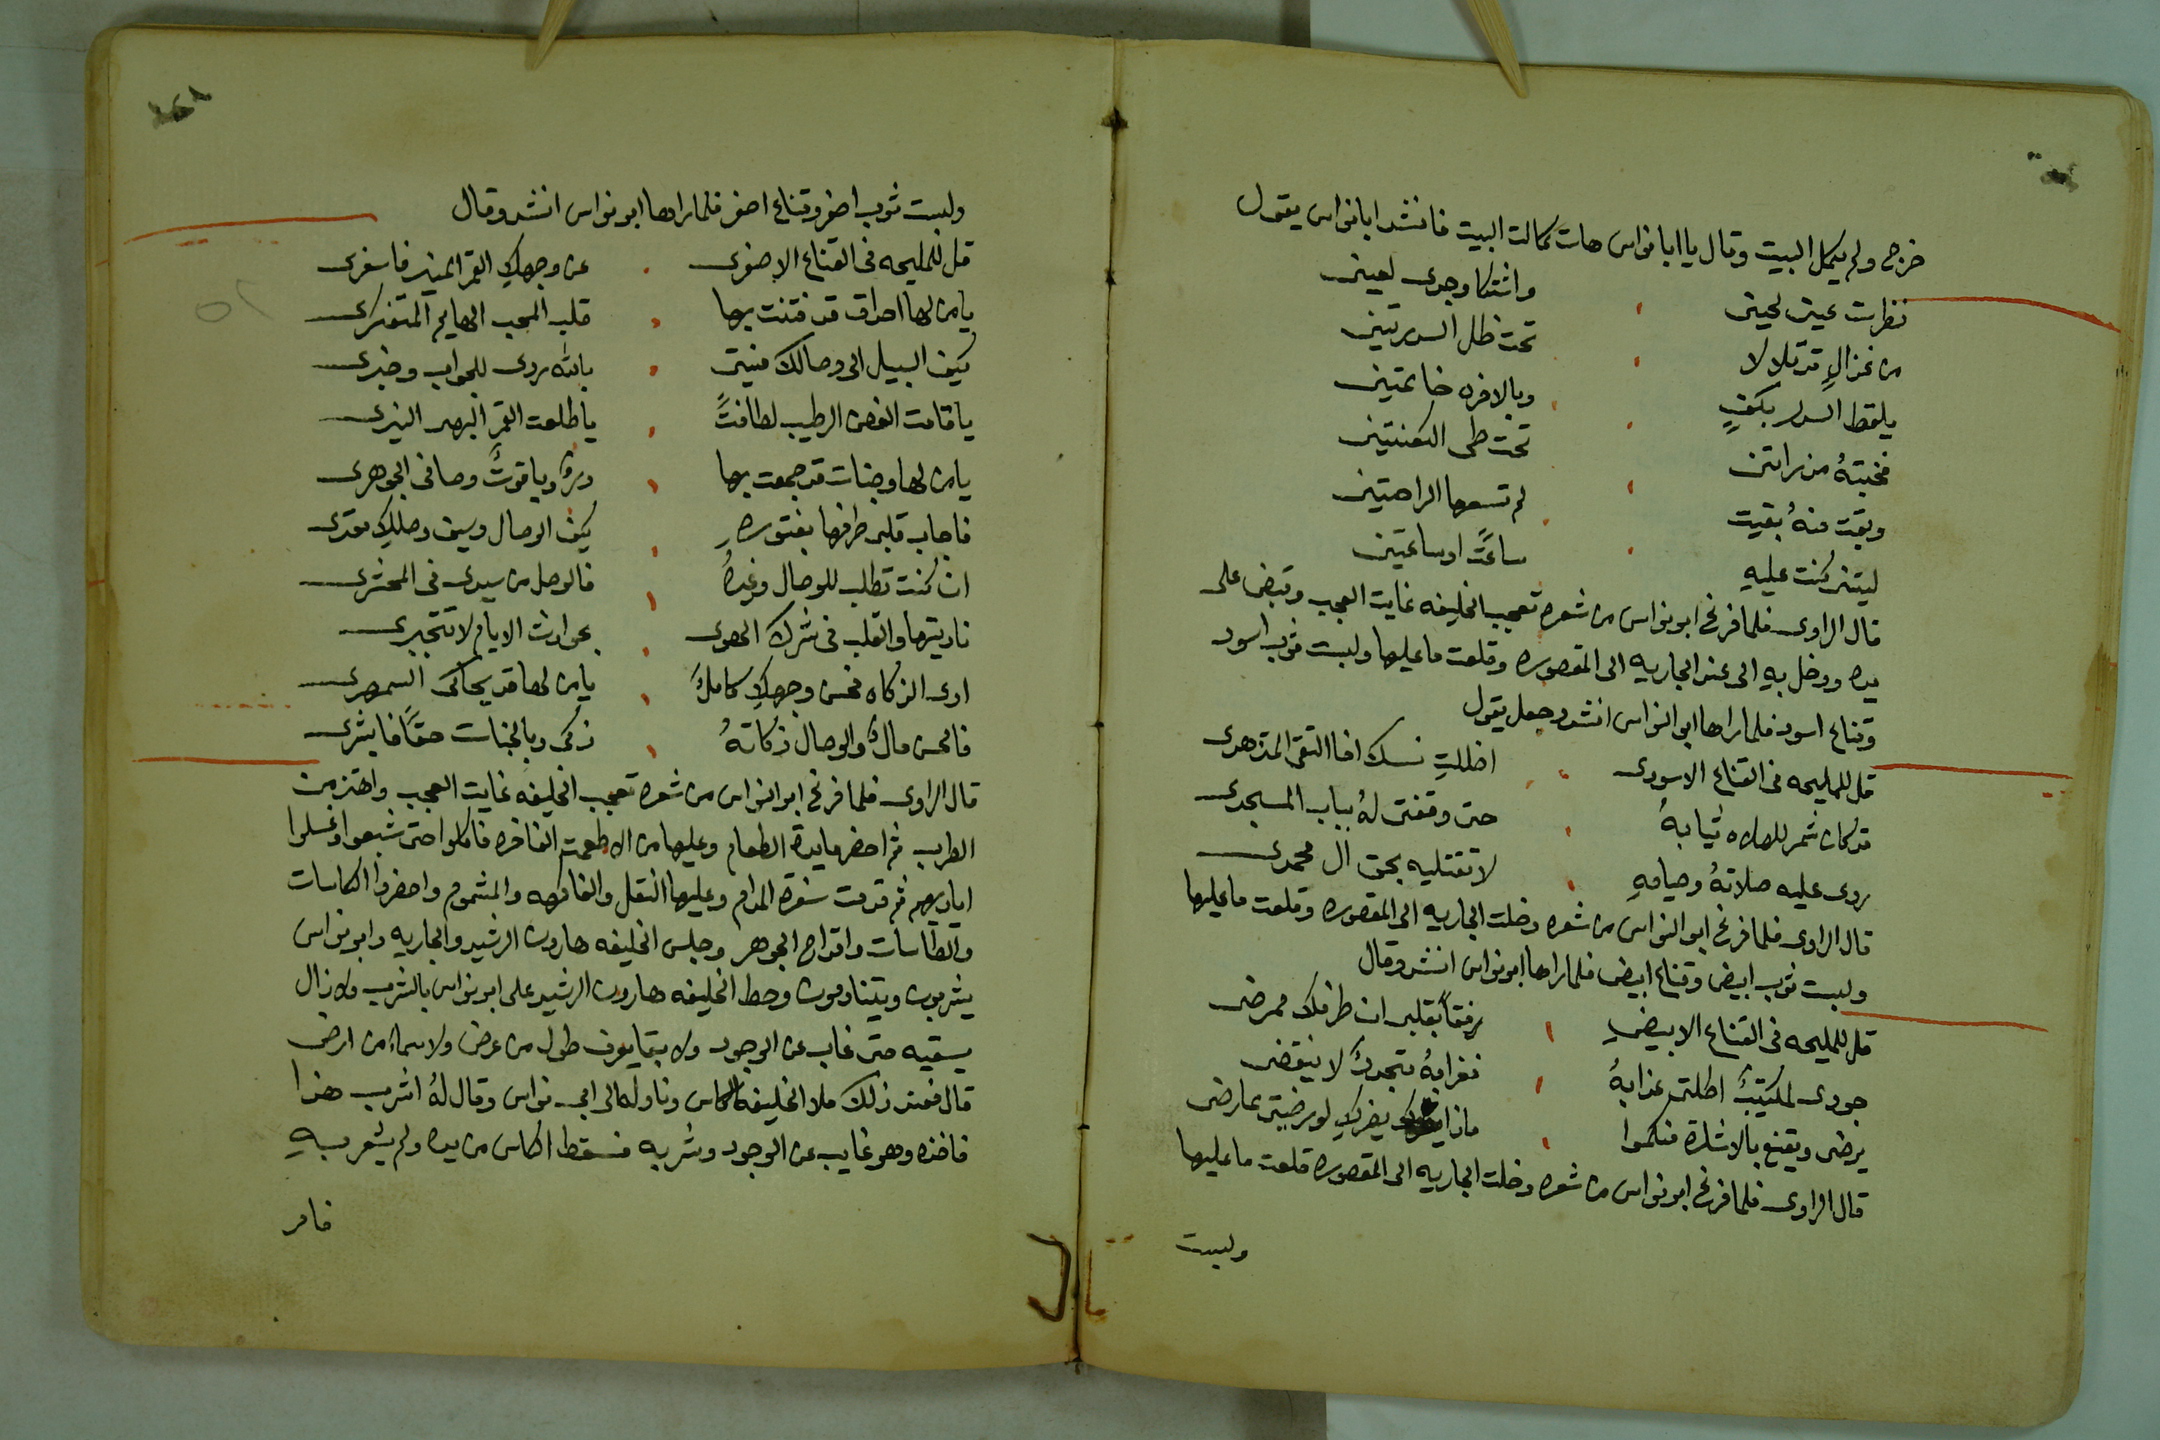 خرج ولم يكمل البيت وقال يا ابا نواس هات كمالت البيت فانشد ابا نواس يقول
نظرت عينى لحينى واشتكا وجدى لعينى
من غزالٍ قد تلالا تحت ظل السدرتين
يلقط السدر بكفٍ وبالاخره خاتمتين
فخبتهُ مذ راتنى تحت طى العكنتين
وبقت منهُ بقيت لم تسعها الراحتين
ليتنى كنت عليهِ ساعتً او ساعتين
قال الراوى فلما فرغ ابو نواس من شعره تعجب الخليفه غايت العجب وقبض على
يده ودخل بهِ الى عند الجاريه الى المقصوره وقلعت ما عليها ولبست ثوب اسود
وقناع اسود فلما راها ابو النواس انشد وجعل يقول
قل للمليحه فى القناع الاسودى اضللتِ نسك اخا التقى المتزهدى
قد كان شمر للصلاه ثيابهُ حتى وقفتى لهُ بباب المسجدى
ردى عليه صلاتهُ وصيامهِ لا تقتليه بحق ال محمدى
قال الراوى فلما فرغ ابو النواس من شعره دخلت الجاريه الى المقصوره وقلعت ما عليها
ولبست ثوب ابيض وقناع ابيض فلما راها ابو نواس انشد وقال
قل للمليحه فى القناع الابيضِ رفقاً بقلبى ان طرفك ممرضى
جودى لمكتئبٌ اطلتى عذابهُ فغرابهُ متجددٌ لا ينقضى
يرضى ويقنع بالاشارة منكموا ماذا يضركِ لو رضيتى بما رضى
قال الراوى فلما فرغ ابو نواس من شعره دخلت الجاريه الى المقصوره قلعت ما عليها
ولبست
ولبست ثوب اصفر وقناع اصفر فلما راها ابو نواس انشد وقال
قل للمليحه فى القناع الاصفرى عن وجهكِ القمر المنير فاسفرى
يا من لها احداق قد فتنت بها قلب المحب الهايم المتفكرى
كيف السبيل الى وصالك منيتى بالله ردى للجواب وخبرى
يا قامت الغصن الرطيب لطافتً يا طلعت القمر البهى النيرى
يا من لها وجنات قد جمعت بها درٌ وياقوتٌ وصافى الجوهرى
فاجاب قلبى طرفها بفتورهِ كيف الوصال وسيف وصلكِ
ان كنت تطلب للوصال وغيرهُ فالوصل من سيدى فى المحشرى
ناديتها والقلب فى شرك الهوى بحوادث الايام لا تتجبرى
ادى الزكاه فحسن وجهكِ كاملٌ يا من لها قد يحاكى السمهرى
فالحسن مالٌ والوصال زكاتهُ زكى وبالجنات حقاً فابشرى
قال الراوى فلما فرغ ابو النواس من شعره تعجب الخليفه غايت العجب واهتز من
الطرب ثم احضر مايدة الطعام وعليها من الاطعمة الفاخره فاكلوا حتى شبعوا وغسلوا
اياديهم ثم قدمت سفرة المدام وعليها النقل والفاكهه والمشموم واحضروا الكاسات
والطاسات واقداح الجوهر وجلس الخليفه هارون الرشيد والجاريه وابو نواس
يشربون ويتنادمون وحط الخليفه هارون الرشيد على ابو نواس بالشرب ولا زال
يسقيه حتى غاب عن الوجود ولا بقا يعرف طول من عرض ولا سماء من ارض
قال فعند ذلك ملا الخليفه الكاس وناوله الى ابى نواس وقال لهُ اشرب هذا
فاخذه وهو غايب عن الوجود وشربه فسقط الكاس من يده ولم يشعر بهِ
فامر